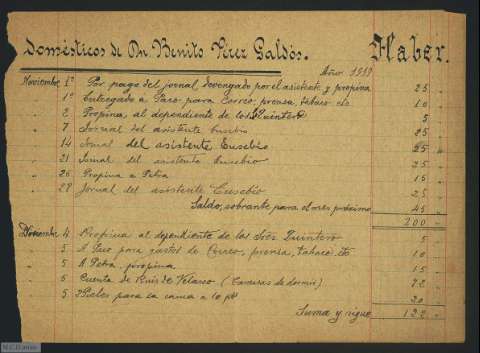 Domésticos de Dn. Benito Pérez Galdós. Haber.
Año 1919
Noviembre 1º Por pago del jornal devengado por el asistente y propina 25 "
" 1º Entregado a Paco para Correo, prensa, tabaco etc 10 "
" 2 Propina al dependiente de los Quintero 5 "
" 7 Jornal del asistente Eusebio 25 "
" 14 Jornal del asistente Eusebio 25 "
" 21 Jornal del asistente Eusebio 25 "
" 26 Propina a Petra 15 "
" 28 Jornal del asistente Eusebio 25 "
Saldo, sobrante para el mes próximo 45 "
200 "
Diciembre 4 Propina al dependiente de los Sres Quintero 5 "
" 5 A Paco para gastos de Correo, prensa, tabaco etc 10 "
" 5 A Petra, propina 15 "
" 6 Cuenta de Ruiz de Velasco (Camisas de dormir) 72 "
" 5 Pieles para la cama a 10 pts 20 "
Suma y sigue 122 "